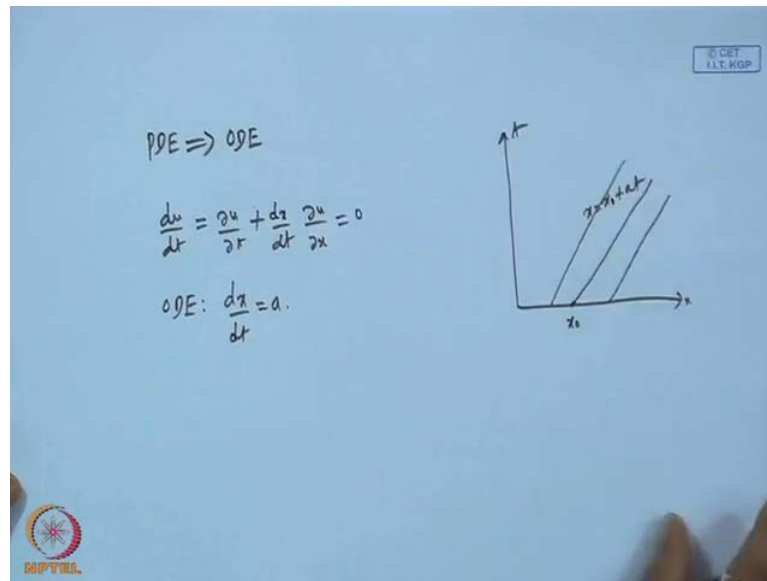 © CET
I.I.T. KGP
PDE ⇒ ODE
du/dt = ∂u/∂t + dx/dt ∂u/∂x = 0
ODE: dx/dt = a.
t
x = x₀ + at
x
x₀
NPTEL